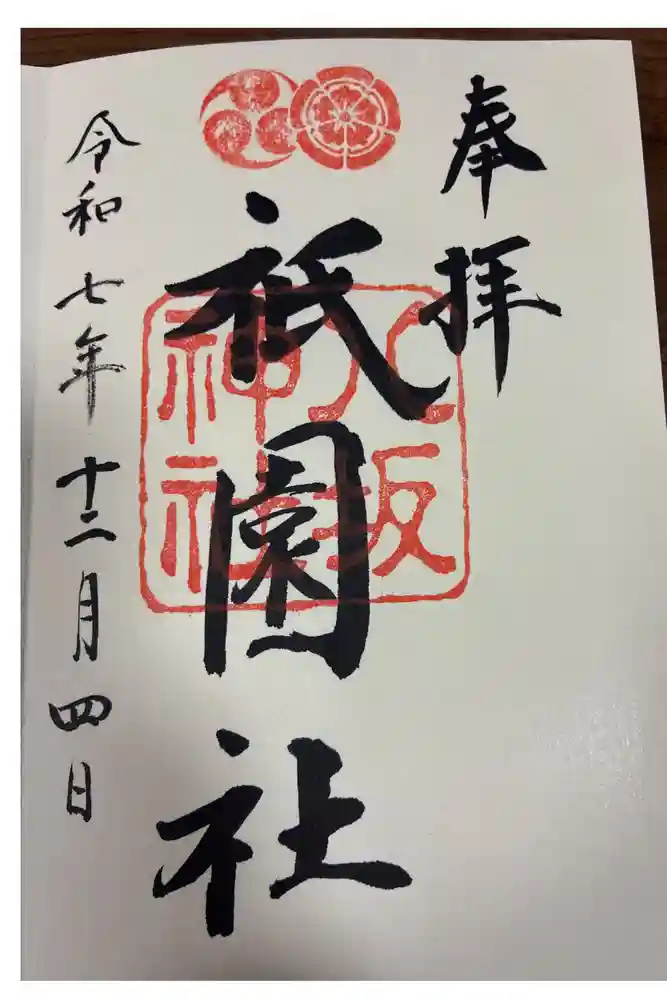 奉拝
祇園社
八坂神社
令和七年十二月四日